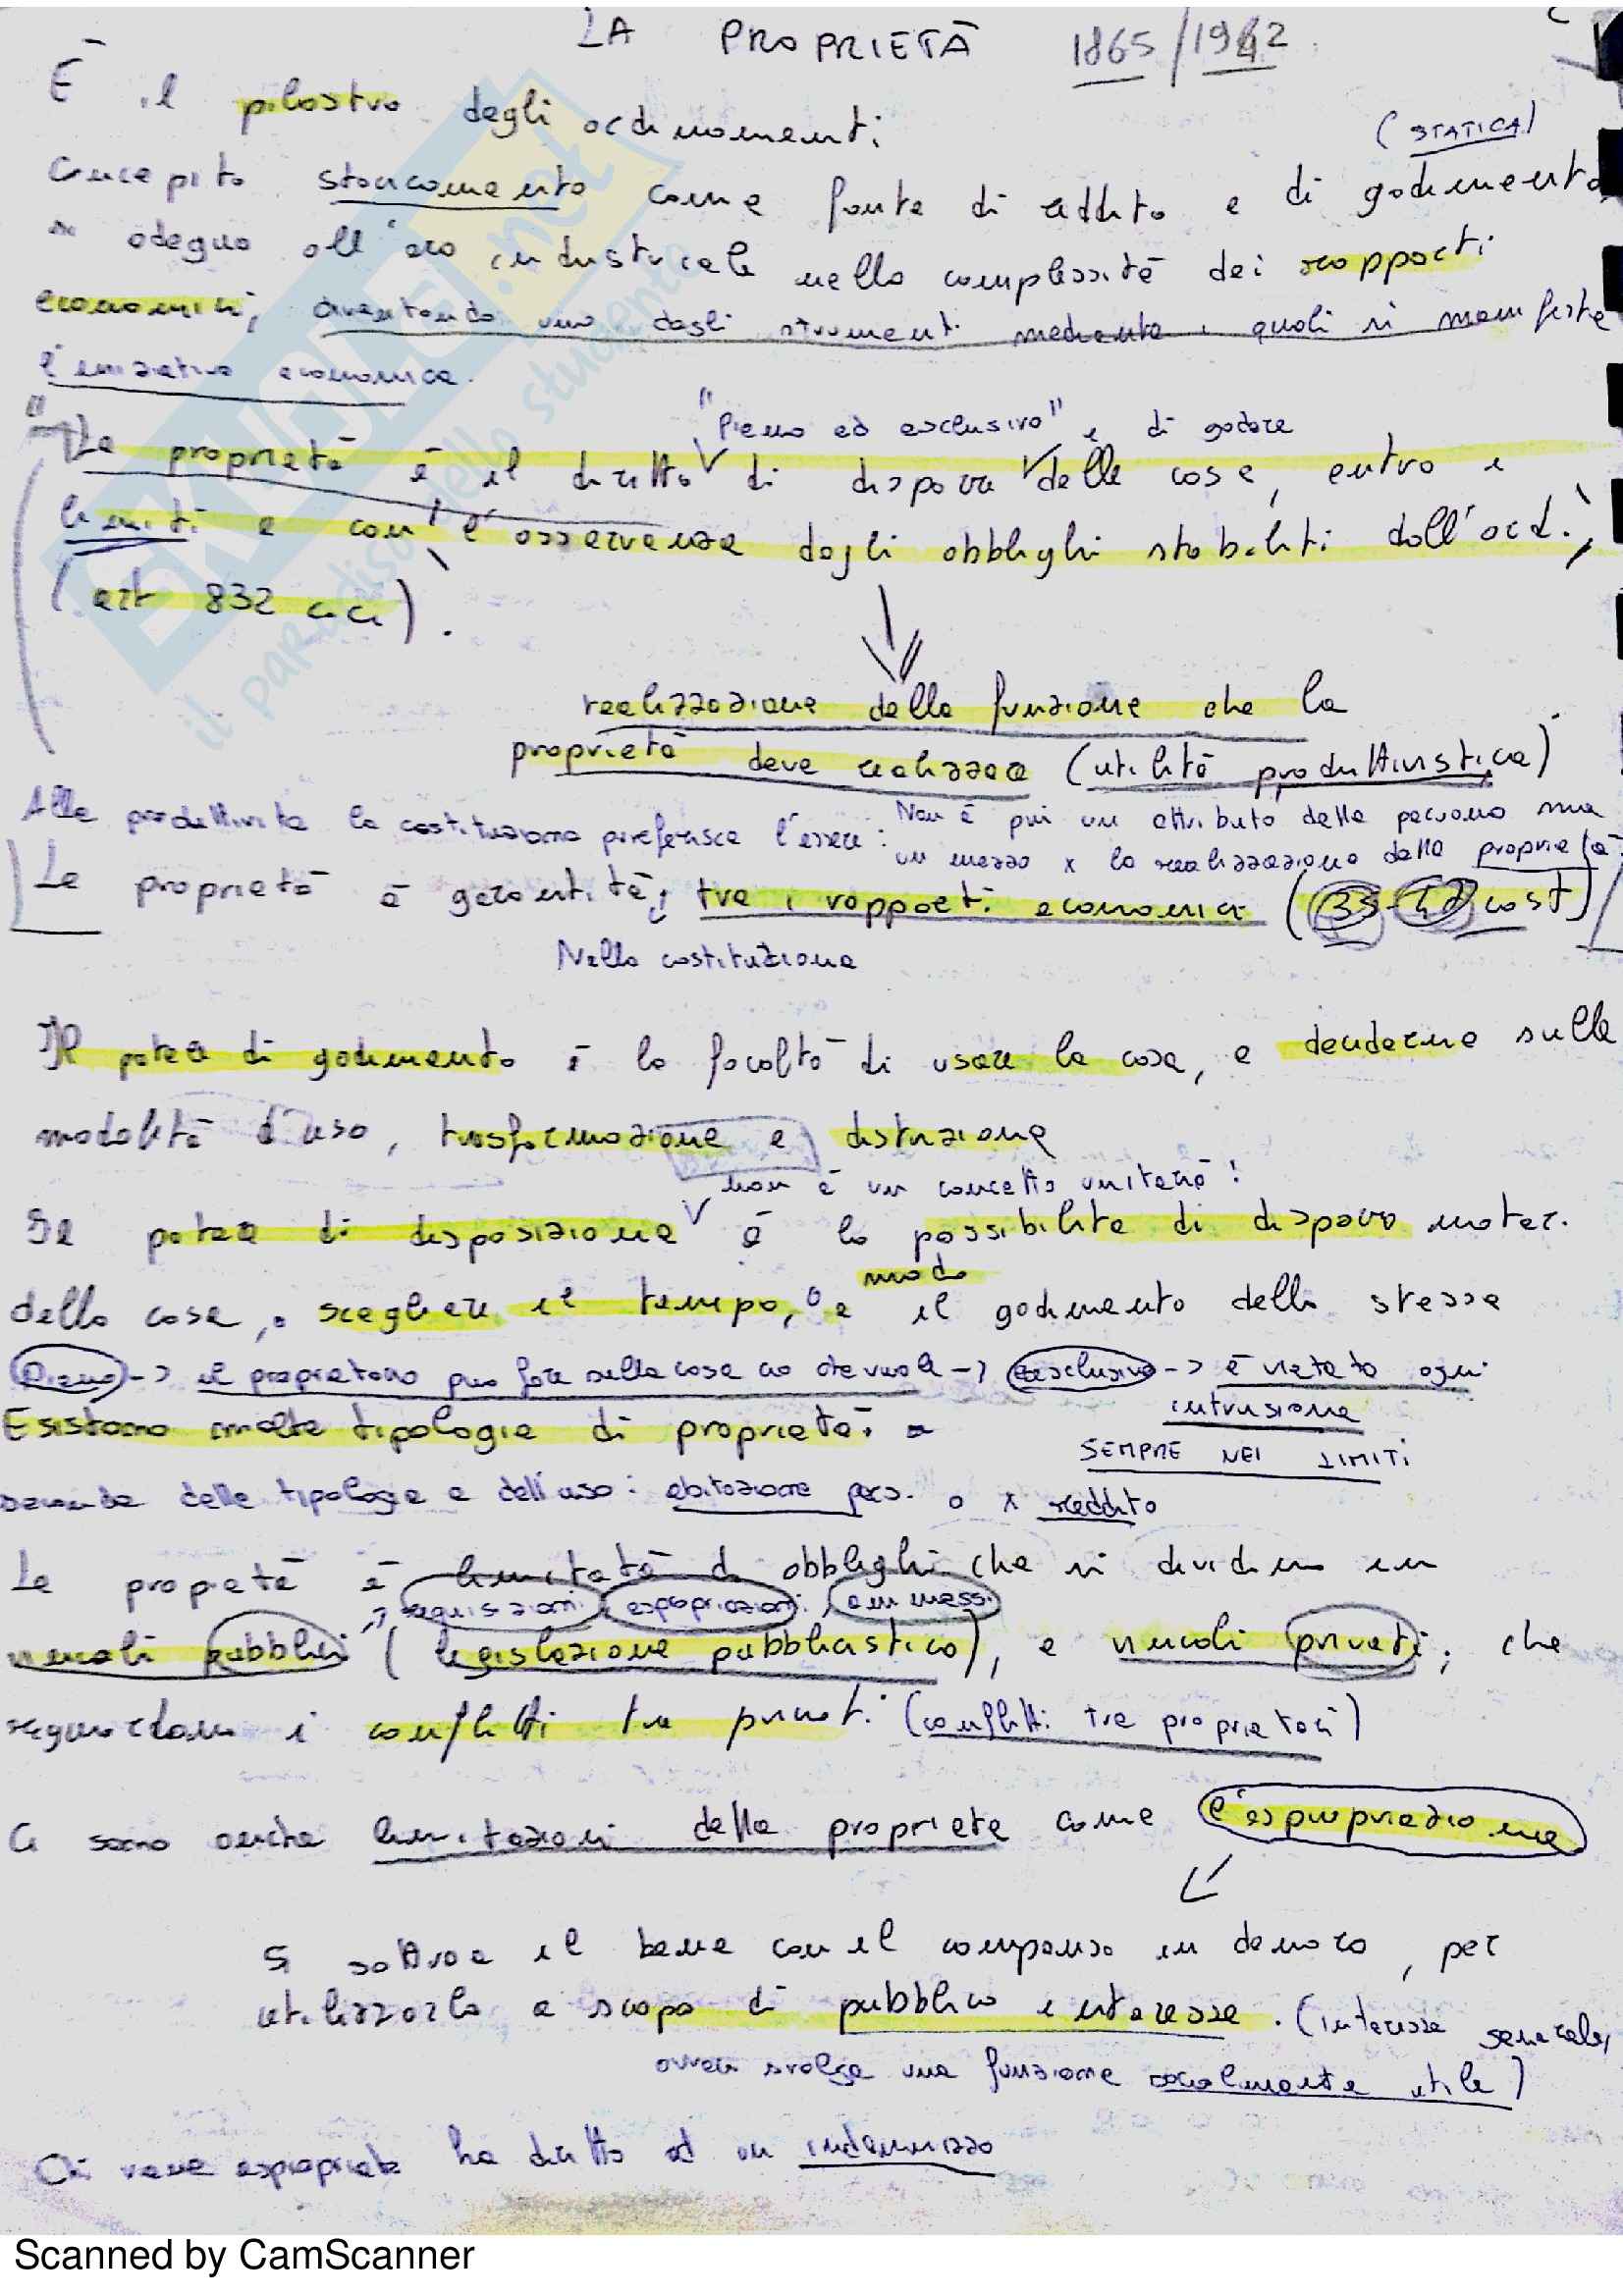 LA PROPRIETÀ 1865/1942
È il pilastro degli ordinamenti
(STATICA)
Concepito storicamente come fonte di reddito e di godimento
si adegua all'era industriale nella complessità dei rapporti
economici, diventando uno degli strumenti mediante i quali si manifesta
l'iniziativa economica.
"Pieno ed esclusivo" e di godere
"La proprietà è il diritto di disporre delle cose, entro i
limiti e con l'osservanza degli obblighi stabiliti dall'ord.",
(art 832 c.c.).
realizzazione della funzione che la
proprietà deve realizzare (utilità produttivistica)
Alla produttività la costituzione preferisce l'essere: Non è più un attributo della persona ma
un mezzo x la realizzazione della proprietà
La proprietà è garantita, tra i rapporti economici (35-42 cost)
Nella costituzione
Il potere di godimento è la facoltà di usare la cosa, e deciderne sulle
modalità d'uso, trasformazione e distruzione
non è un concetto unitario!
Il potere di disposizione è la possibilità di disporre mater.
modo
della cosa, o scegliere il tempo, e il godimento della stessa
Pieno -> il proprietario può fare sulla cosa ciò che vuole -> esclusivo -> è vietato ogni
intrusione
Esistono molte tipologie di proprietà: a
SEMPRE NEI LIMITI
seconda delle tipologie e dell'uso: abitazione pers. o x reddito
La propietà è limitata da obblighi che si dividono in
requisizioni, espropriazioni, ammassi
vincoli pubblici (legislazione pubblicistica), e vincoli privati, che
riguardano i conflitti tra privati (conflitti tra proprietari)
Ci sono anche limitazioni della proprietà come l'espropriazione
Si sottrae il bene con il compenso in denaro, per
utilizzarlo a scopo di pubblico interesse. (interesse generale,
ovvero svolge una funzione socialmente utile)
Chi viene espropriato ha diritto ad un indennizzo
SKUOLA.net
il paradiso dello studente
Scanned by CamScanner